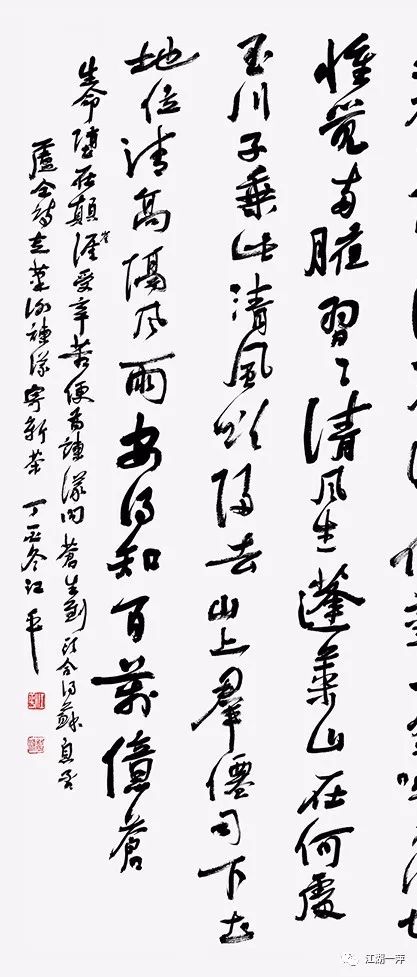 惟覺兩腋習習清風生蓬萊山在何處
玉川子乘此清風欲歸去山上羣僊司下土
地位清高隔風雨安得知百萬億蒼
生命墮在顛涯崖受辛苦便為諫議問蒼生到頭合得蘇息否
盧仝詩走筆謝諫議寄新茶 丁酉冬江平
江湖一萍